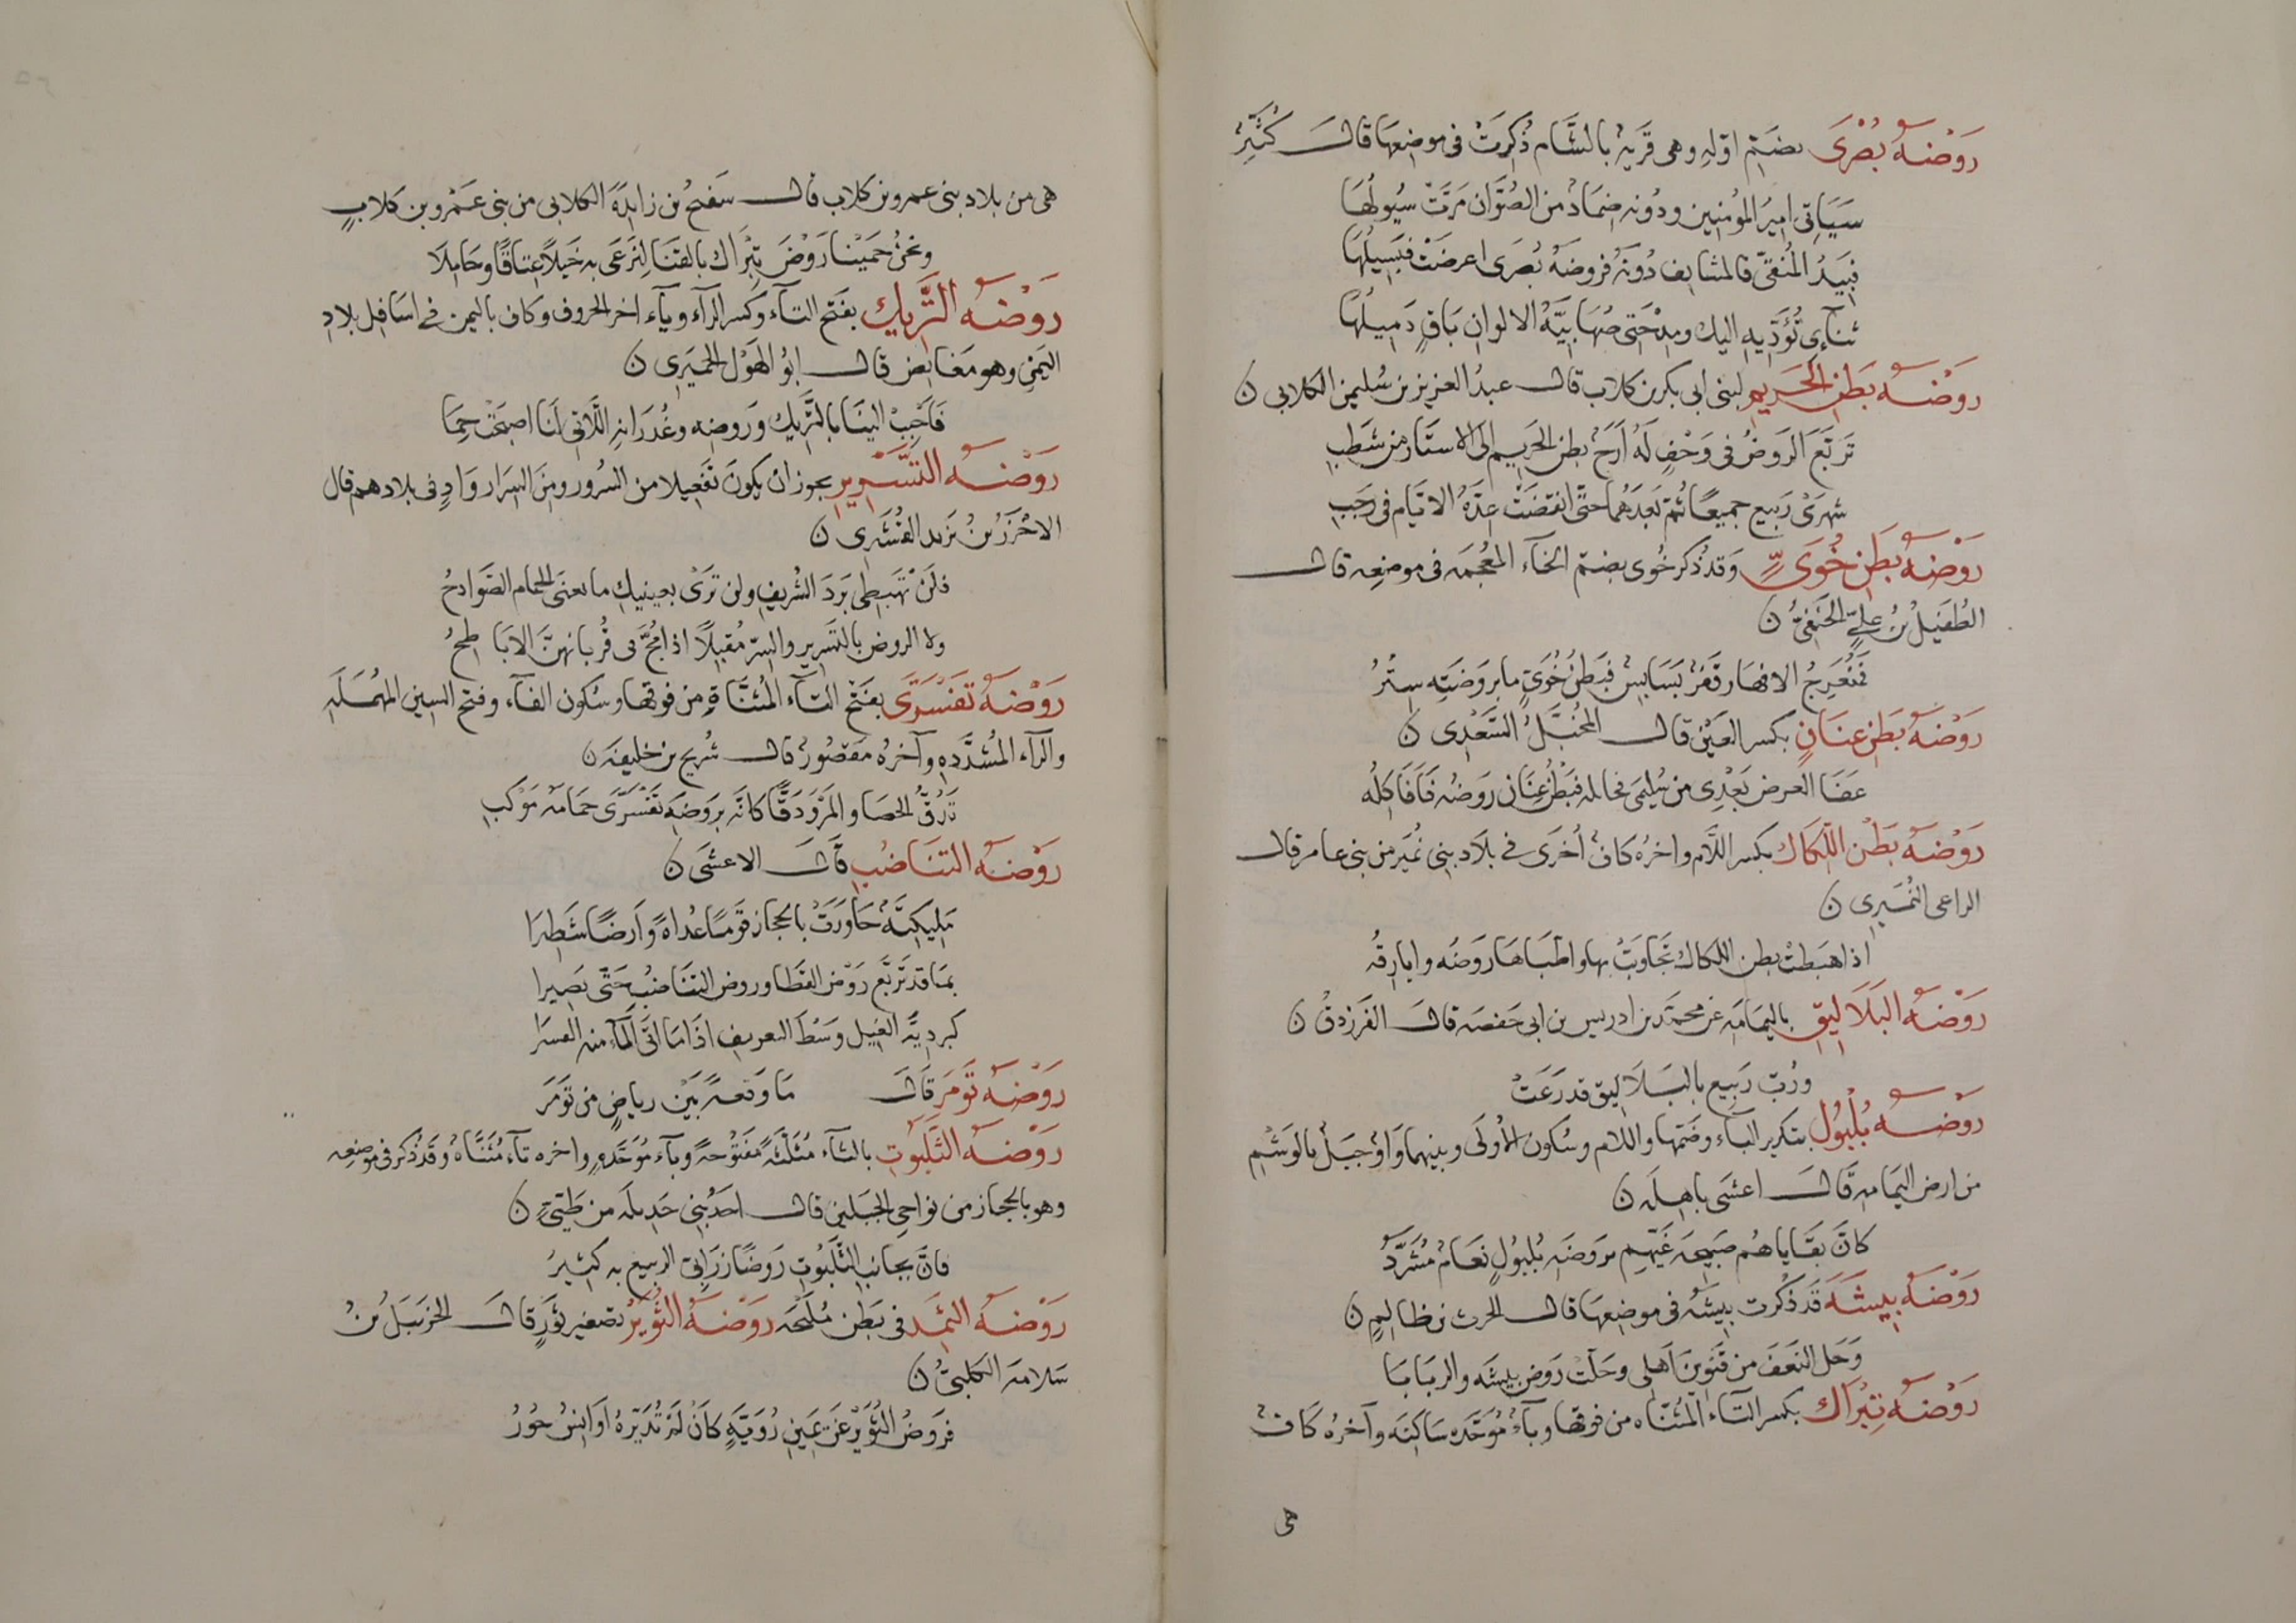 رَوْضَةُ بُصْرَى بضَمّ اوّلهِ وهى قَريةٌ بالشَّام ذُكِرَتْ فى موضِعهَا قالَ كُثَيِّرُ
سَيَاتِى اميرُ المؤمنين ودُونه صِمَادٌ من الصُّوَّان مَرَّتْ سُيُولُهَا
فبِيدُ المُنَقّى فالمشايف دُونَهُ فروضَةُ بُصرَى اعرضَتْ فبَسِيلُهَا
ثنآءِى تُؤَدِّيهِ اليك ومِدْحَتِى صُهَابِيَّةُ الالوانِ باقٍ ذَمِيلُهَا
رَوْضَةُ بَطنِ الحَرِيمِ لبنى ابى بكر بن كلاب قالَ عبدُ العزيز بن سُليمن الكلابى ن
تَربَّعَ الرَوضُ فى وَحْفٍ لَهُ أَرَجٌ بطن الحَرِيم الى الاستَار من شَطبِ
شهرَىْ رَبيع جميعًا ثُمّ بَعدَهُمَا حتّى انقضَتْ عِدَّةُ الايّام فى رَجَبِ
رَوْضَةُ بطَنِ خُوَىٍّ وَقد ذُكر خُوى بضمّ الخآء المعُجمَه فى موضعِه قالَ
الطُفَيلُ بنُ علىٍّ الحَنَفىُّ ن
فمُنعَرِجُ الافهَار قَفرٌ بَسَابِسٌ فبَطنُ خُوَىٍّ ما بروَضَتِه سِتْرُ
رَوْضَةُ بَطنِ عِنَانٍ بكسر العَيْن قالَ المُخَبَّلُ السَّعْدِى ن
عَفَا العرض بَعْدِى من سُليمَى فحائله فبَطْنُ عِنَان رَوضُه فَافَاكِلُه
رَوْضَةُ بَطْن اللِّكاك بكسر اللَّام واخرُه كافٌ أخرَى فى بلَاد بنى نُمَير من بنى عامر قالَ
الراعى النُمَيرِى ن
اذا هَبطتْ بطن اللكاك تجَاوَبَتْ بها واطّبَاهَا رَوضُه وابارِقُه
رَوْضَةُ البَلَالِيقِ باليمَامَهِ عن محمَّد بن ادريس بن ابى حَفصَه قالَ الفَرَزدقُ ن
ورُبّ رَبِيع بالبَلَاليق قد رَعَتْ
رَوْضَةُ بُلْبُولٍ بتكرير البآء وضَمّها واللام وسُكون الأولَى وبينهما وَاوٌ جبَلٌ بالوَشْمِ
من ارض اليَمامه قَالَ اعشَى باهِلَه ن
كانَّ بقَاياهُم صَبِيحَه غَيّهِم بروَضَةِ بُلبُولٍ نعَامٌ مُشَرَّدُ
رَوْضَةُ بِيشَه قَد ذُكرت بِيشَهُ فى موضِعهَا قالَ الحرث بن ظالِمٍ ن
وَحَل النَعفَ من قَنَوينَ اَهلى وحَلَتْ رَوضَ بيشَه والربَابَا
رَوْضَةُ تِبْرَاك بكسر التاء المُثنّاه من فوقها وبآءٌ مُوَحَّده سَاكِنَه وآخرُه كَافٌ
هى
هى من بلاد بنى عمرو بن كلاب قالَ سَفحُ بن زايدَةَ الكلابى من بنى عَمْرو بن كلابٍ
ونحنُ حَمَيْنا رَوْضَ تِبْرَاك بالقَنَا لِنَرعَى به خَيلًا عتاقًا وحَامِلَا
رَوْضَةُ التَّرِيكِ بفَتح التآء وكسر الرآء ويآء اخر الحروف وكاف باليمن فى اسَافِل بلادِ
اليَمنِ وهو مَغايض قالَ ابوُ الهَوْل الحِميَرِى ن
فَاَحْبِبْ الينَا بالتَّرِيكِ ورَوضِه وغُدرَانِه اللَّاتى لَنَا اصبَحَتْ حِمَا
رَوْضَةُ التَّسْرِيرِ يجوز ان يكونَ تَفعِيلا من السُرور ومنَ السِرَار وَادٍ فى بلادهم قال
الاخْزَرُ بنُ يزيد القُشَيرِى ن
فلَنْ تَهبِطى بَردَ الشُريفِ ولن تَرَىْ بعينيكِ ما يغنى الحمَام الصَوادحُ
ولا الروض بالتَسرِير والسِرّ مُقبِلًا اذا مُجّ فى قُريانهنَّ الابَاطِحُ
رَوْضَةُ تَفَسْرَّى بفَتْح التآء المُثنَّاةِ من فوقهَا وسُكون الفآء وفتح السين المهُملَه
والرآء المُشدَّدهِ وآخرُه مقصُورٌ قالَ شُريح بن خليفَه ن
تَدُقُّ الحصَا والمَرْوَدَقًّا كانَّه برَوضَةِ تَفسَرَّى حمَامَة مَوْكبِ
رَوْضَةُ التَنَاضُبِ قَالَ الاعشَى ن
مَلِيكيّةٌ جَاوَرَتْ بالحجاز قَومًا عُداةً وَارضًا شَطِيرَا
بمَا قد تَربَّع رَوْضَ القَطَا وروضَ التَنَاضُبِ حَتّى يَصِيرا
كبردِيّةِ الغِيل وَسْطَ الغريف اذَا مَا اتَى المآء منه السرَا
رَوْضَةُ تَومَرَ قَالَ مَا رَوضَةٌ بَيْنَ رياضٍ من تَوْمَرَ
رَوْضَةُ الثَّلَبُوتِ بالثآء مُثَلّثَةً مَفتُوحَةً وبآء مُوَحَّدهٍ واخره تآء مُثَنَّاه وقد ذُكر فى موضعِه
وهو بالحجاز من نواحى الجَبَلين قالَ احَدُ بَنِى جَدِيلَه من طَىِّءٍ ن
فانَّ بجانب الثَّلَبُوتِ رَوضًا زَرَابِىّ الربيع به كثيرُ
رَوْضَةُ الثمَد فى بَطن مُلَيْحَه رَوْضَةُ الثُوَيْرِ تصغير ثَورٍ قالَ الحَزَنبَلُ بنُ
سَلامَه الكلبىُّ ن
فرَوضُ الثُوَيْر عَن يمَينِ رُوَيَّةٍ كانْ لَم تُدَيِّرهُ اَوَانِسُ حُورُ